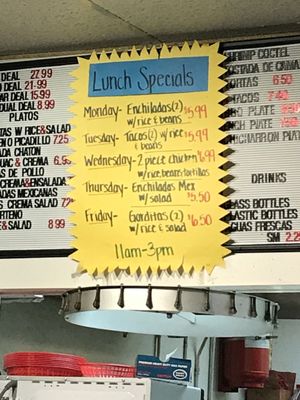 DEAL 27.99
DEAL 21.99
DEAL 15.99
DUAL 8.99
PLATOS
TAS W RICE&SALAD
EN O PICADILLO 7.25
ADA CHATON
UAC & CREMA 6.99
AS DE POLLO
CREMA&ENSALADA
ADAS MEXICANAS
S CREMA SALAD 7.25
RTENO
E&SALAD 8.99
Lunch Specials
Monday- Enchiladas(2) $5.99
w/rice & beans
Tuesday- Tacos(2) w/rice $5.99
& beans
Wednesday- 2 piece chicken $6.99
w/rice, beans, tortillas
Thursday- Enchiladas Mex
w/ salad $5.50
Friday- Gorditas(2) $6.50
w/rice & salad
11am-3pm
COCTEL
TOSTADA DE
TORTAS 6.50
TACOS
PLATE
PLATE
CHICHARRON PLATE
DRINKS
GLASS BOTTLES
LASTIC BOTTLES
GUAS FRESCAS
SM